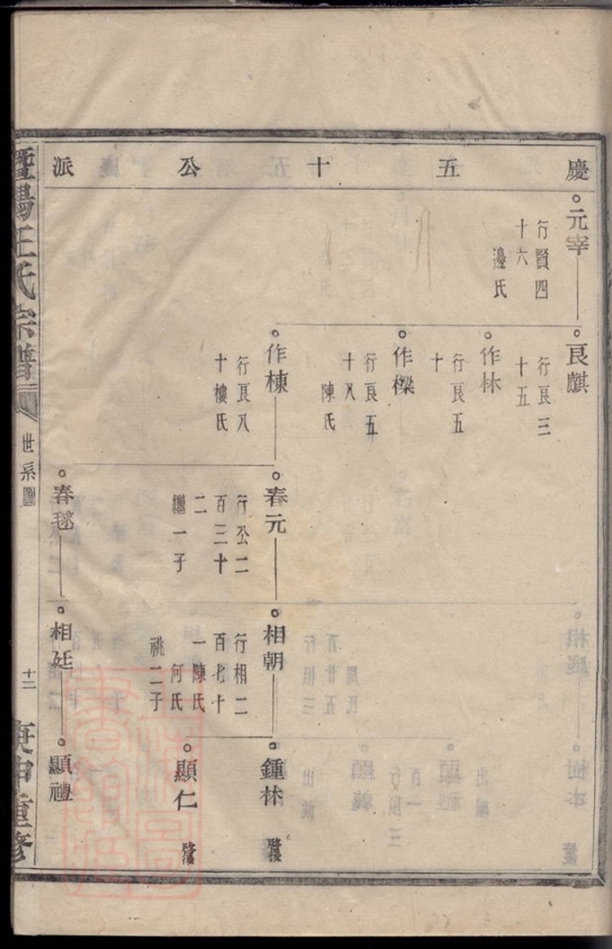 慶五十公派
元宰
行賢四
十六
邊氏
良麒
行良三
十五
作林
行良五
十
作樑
行良五
十八
陳氏
作棟
行良八
十樓氏
春元
行公二
百三十
二
繼一子
春毬
相朝
行相二
百七十
一陳氏
何氏
祧二子
相廷
鍾林
顯仁
顯禮
暨陽王氏宗譜
世系圖
十二
庚申重修